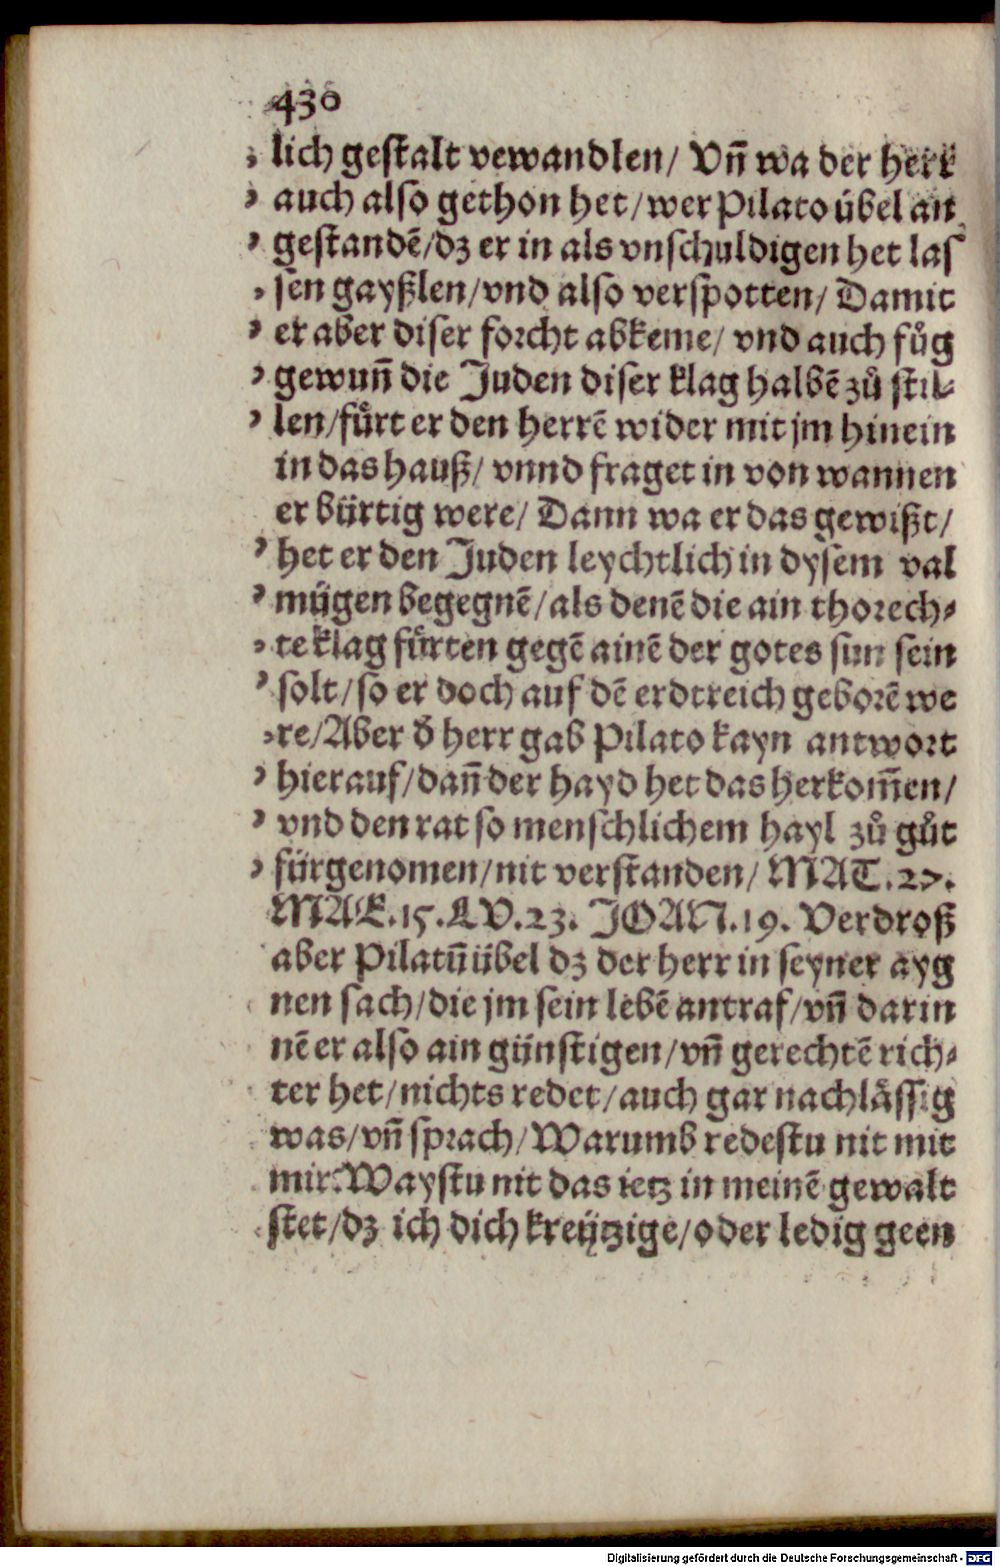 430
, lich gestalt vewandlen/ Vñ wa der herr
, auch also gethon het/wer Pilato übel an
, gestandẽ/dz er in als vnschuldigen het las
, sen gayßlen/vnd also verspotten/ Damit
, er aber diser forcht abkeme/ vnd auch fůg
, gewuñ die Juden diser klag halbẽ zů stil⸗
, len/fůrt er den herrẽ wider mit jm hinein
in das hauß/ vnnd fraget in von wannen
er bürtig were/ Dann wa er das gewißt/
, het er den Juden leychtlich in dysem val
, mügen begegnẽ/als denẽ die ain thorech⸗
, te klag fůrten gegẽ ainẽ der gotes sun sein
, solt/so er doch auf dẽ erdtreich geborẽ we
, re/Aber ð herr gab Pilato kayn antwort
, hierauf/dañ der hayd het das herkom̃en/
, vnd den rat so menschlichem hayl zů gůt
, fürgenomen/nit verstanden/ MAT.27.
MAR.15.LV.23. JOAN.19. Verdroß
aber Pilatũ übel dz der herr in seyner ayg
nen sach/die jm sein lebẽ antraf/vñ darin
nẽ er also ain günstigen/vñ gerechtẽ rich⸗
ter het/nichts redet/auch gar nachlåssig
was/vñ sprach/Warumb redestu nit mit
mir?Waystu nit das ietz in meinẽ gewalt
stet/dz ich dich kreützige/oder ledig geen
Digitalisierung gefördert durch die Deutsche Forschungsgemeinschaft - DFG